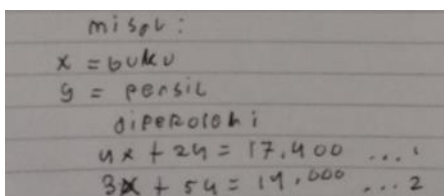 misal:
x = buku
y = pensil
diperolehi
4x + 2y = 17.400 ... 1
3x + 5y = 19.000 ... 2